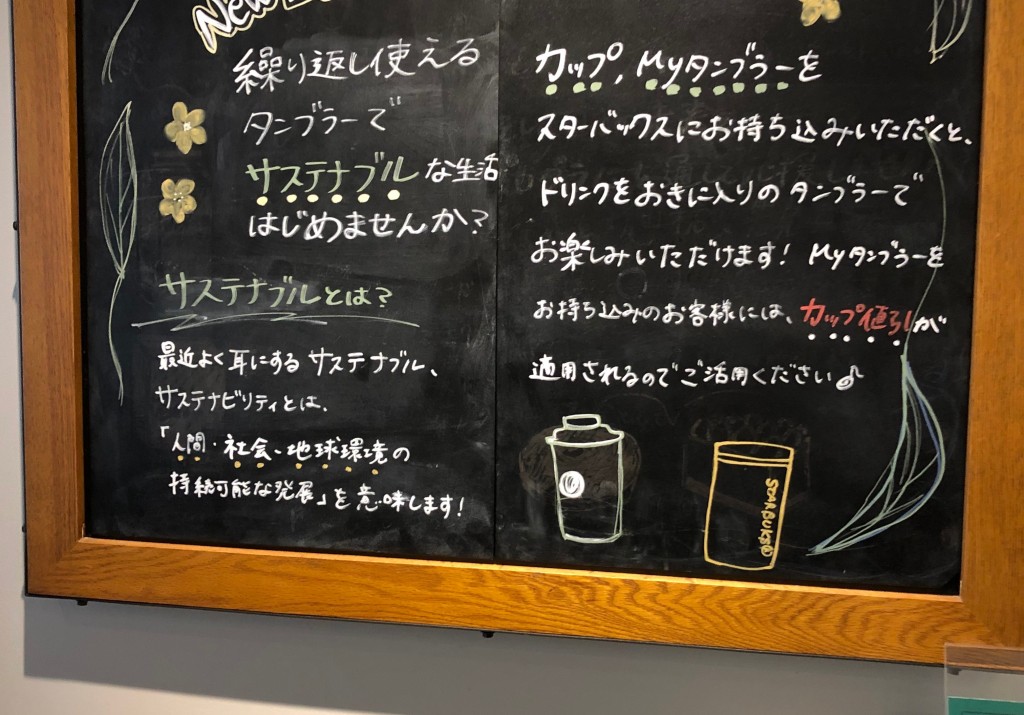 New
繰り返し使える
タンブラーで
サステナブルな生活
はじめませんか?
サステナブルとは?
最近よく耳にするサステナブル、
サステナビリティとは、
「人間・社会・地球環境の
持続可能な発展」を意味します!
カップ, Myタンブラーを
スターバックスにお持ち込みいただくと、
ドリンクをおきに入りのタンブラーで
お楽しみいただけます! Myタンブラーを
お持ち込みのお客様には、カップ値引が
適用されるのでご活用ください♪
STARBUCKS